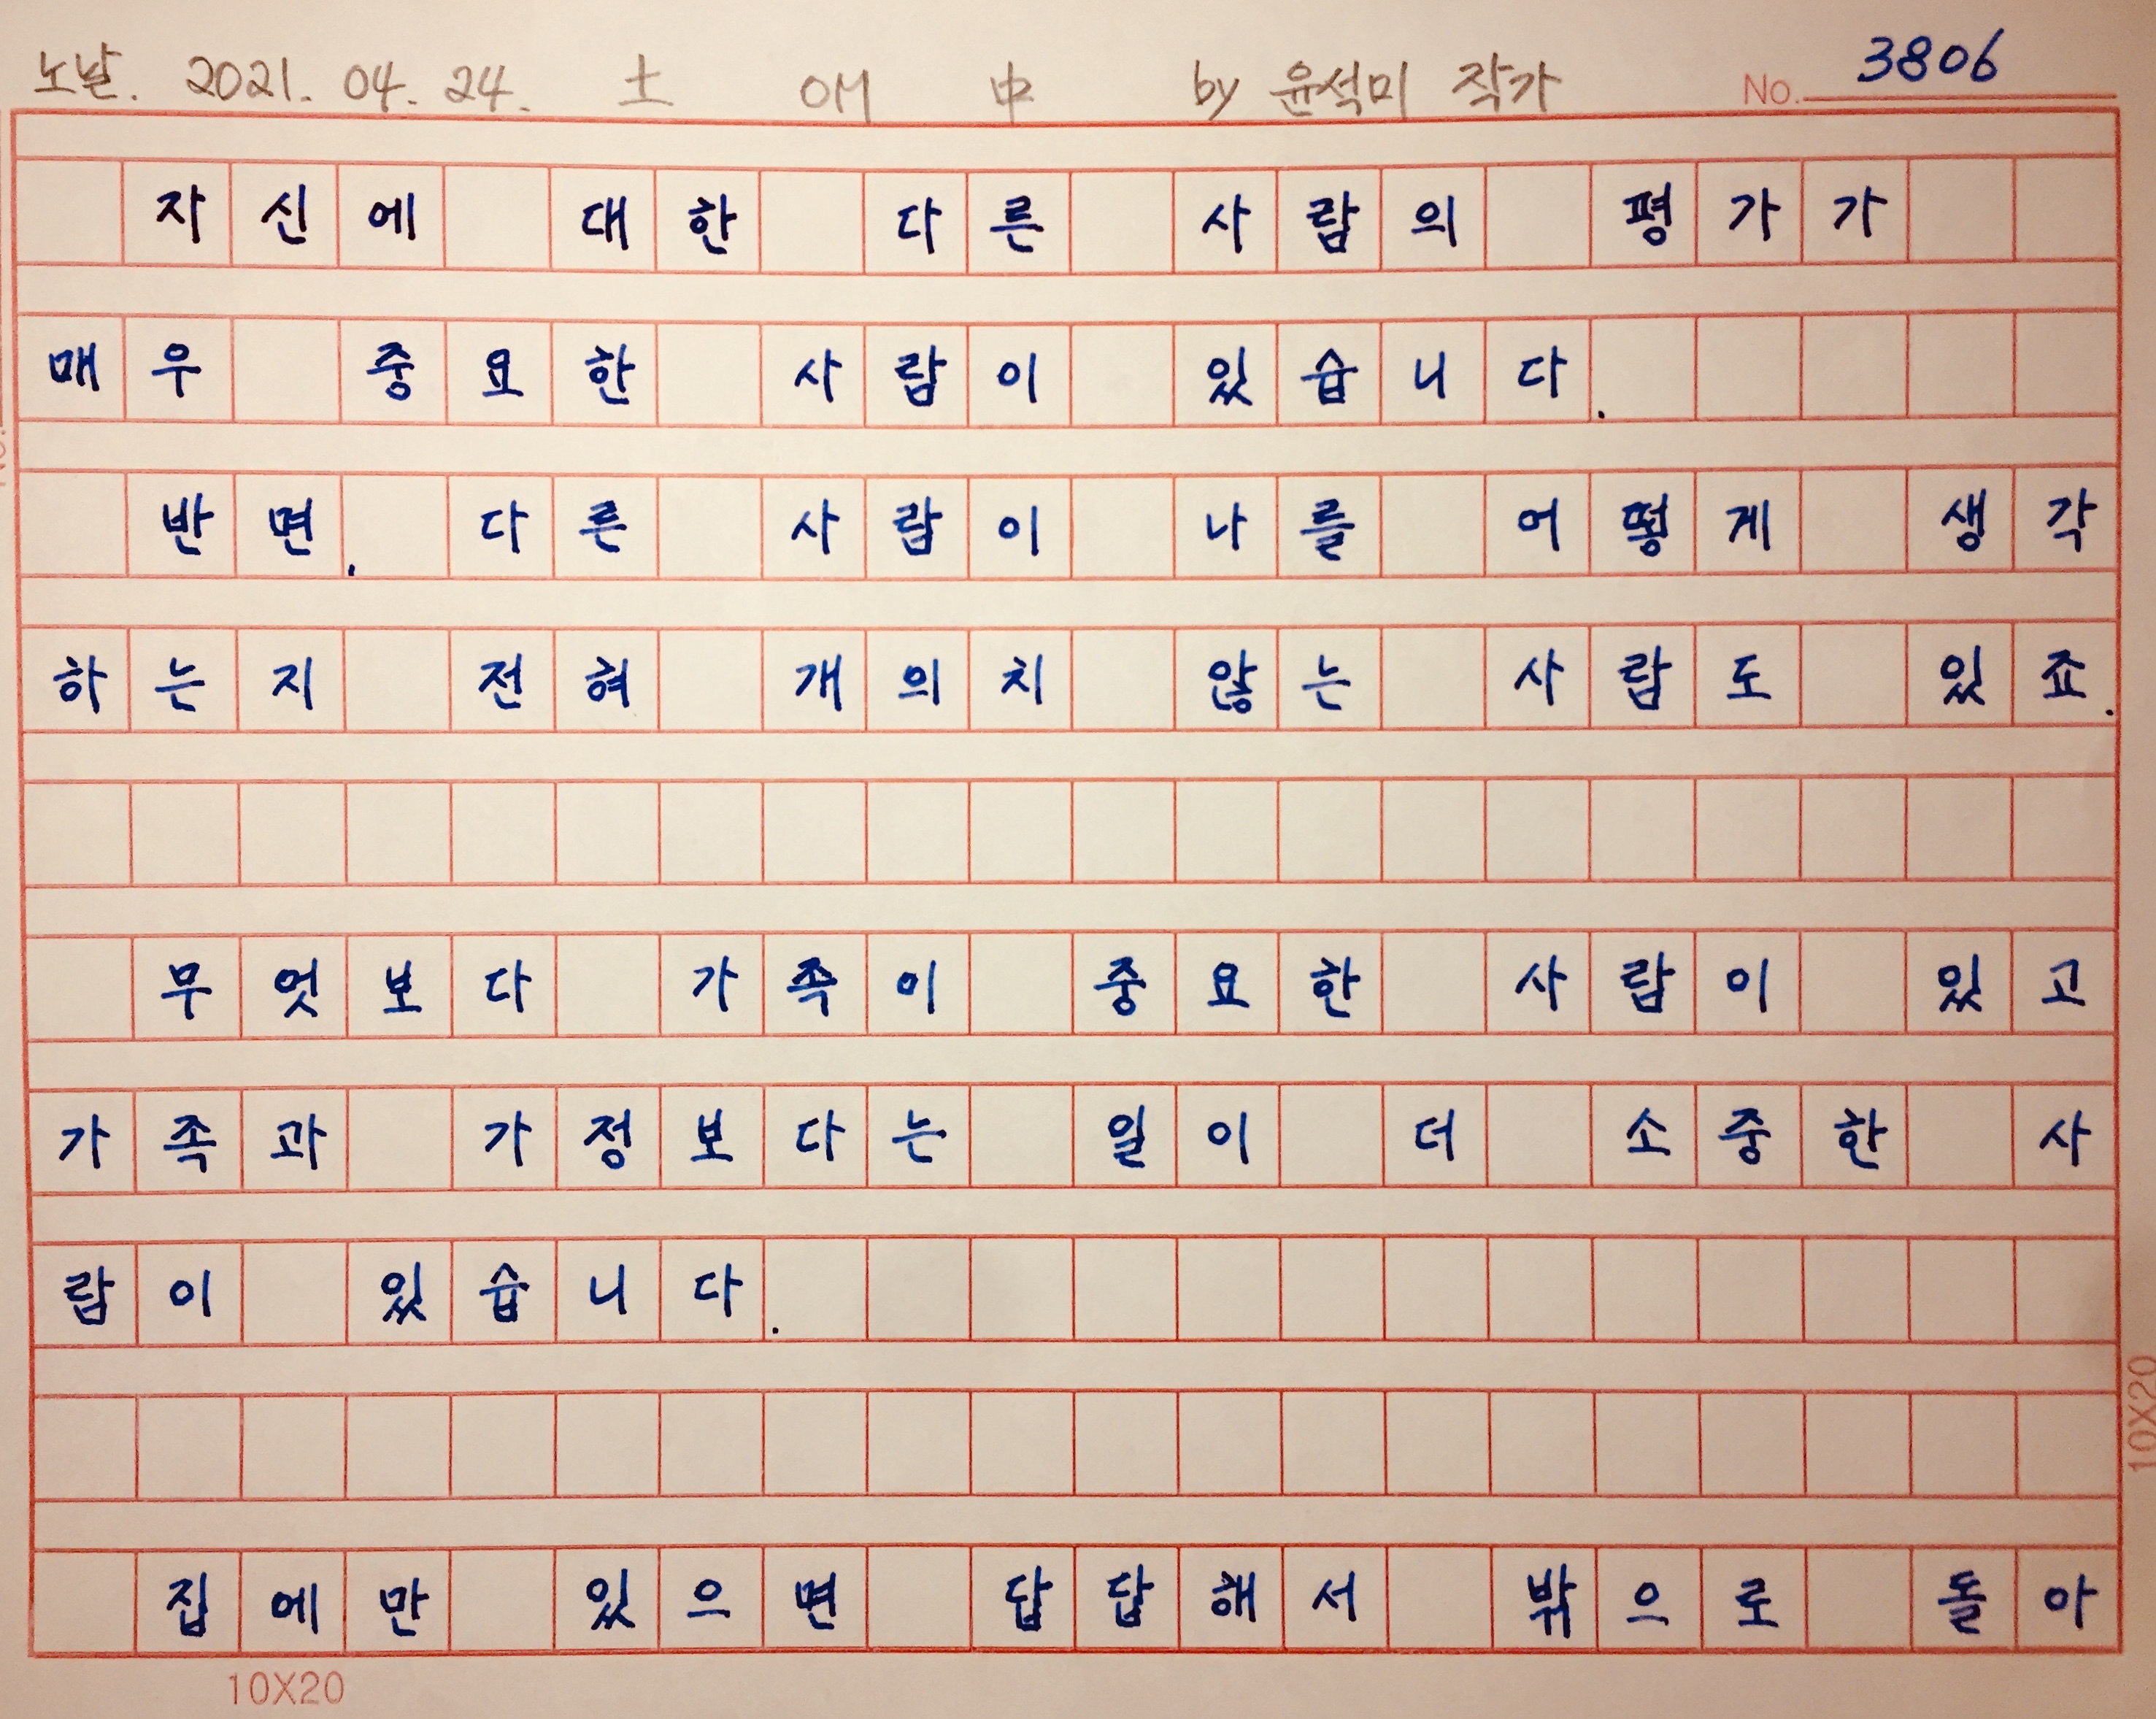 노날. 2021. 04. 24. 土 OM 中 by 윤석미 작가 No. 3806
자신에 대한 다른 사람의 평가가
매우 중요한 사람이 있습니다.
반면. 다른 사람이 나를 어떻게 생각
하는지 전혀 개의치 않는 사람도 있죠.
무엇보다 가족이 중요한 사람이 있고
가족과 가정보다는 일이 더 소중한 사
람이 있습니다.
집에만 있으면 답답해서 밖으로 돌아
10X20
10X20